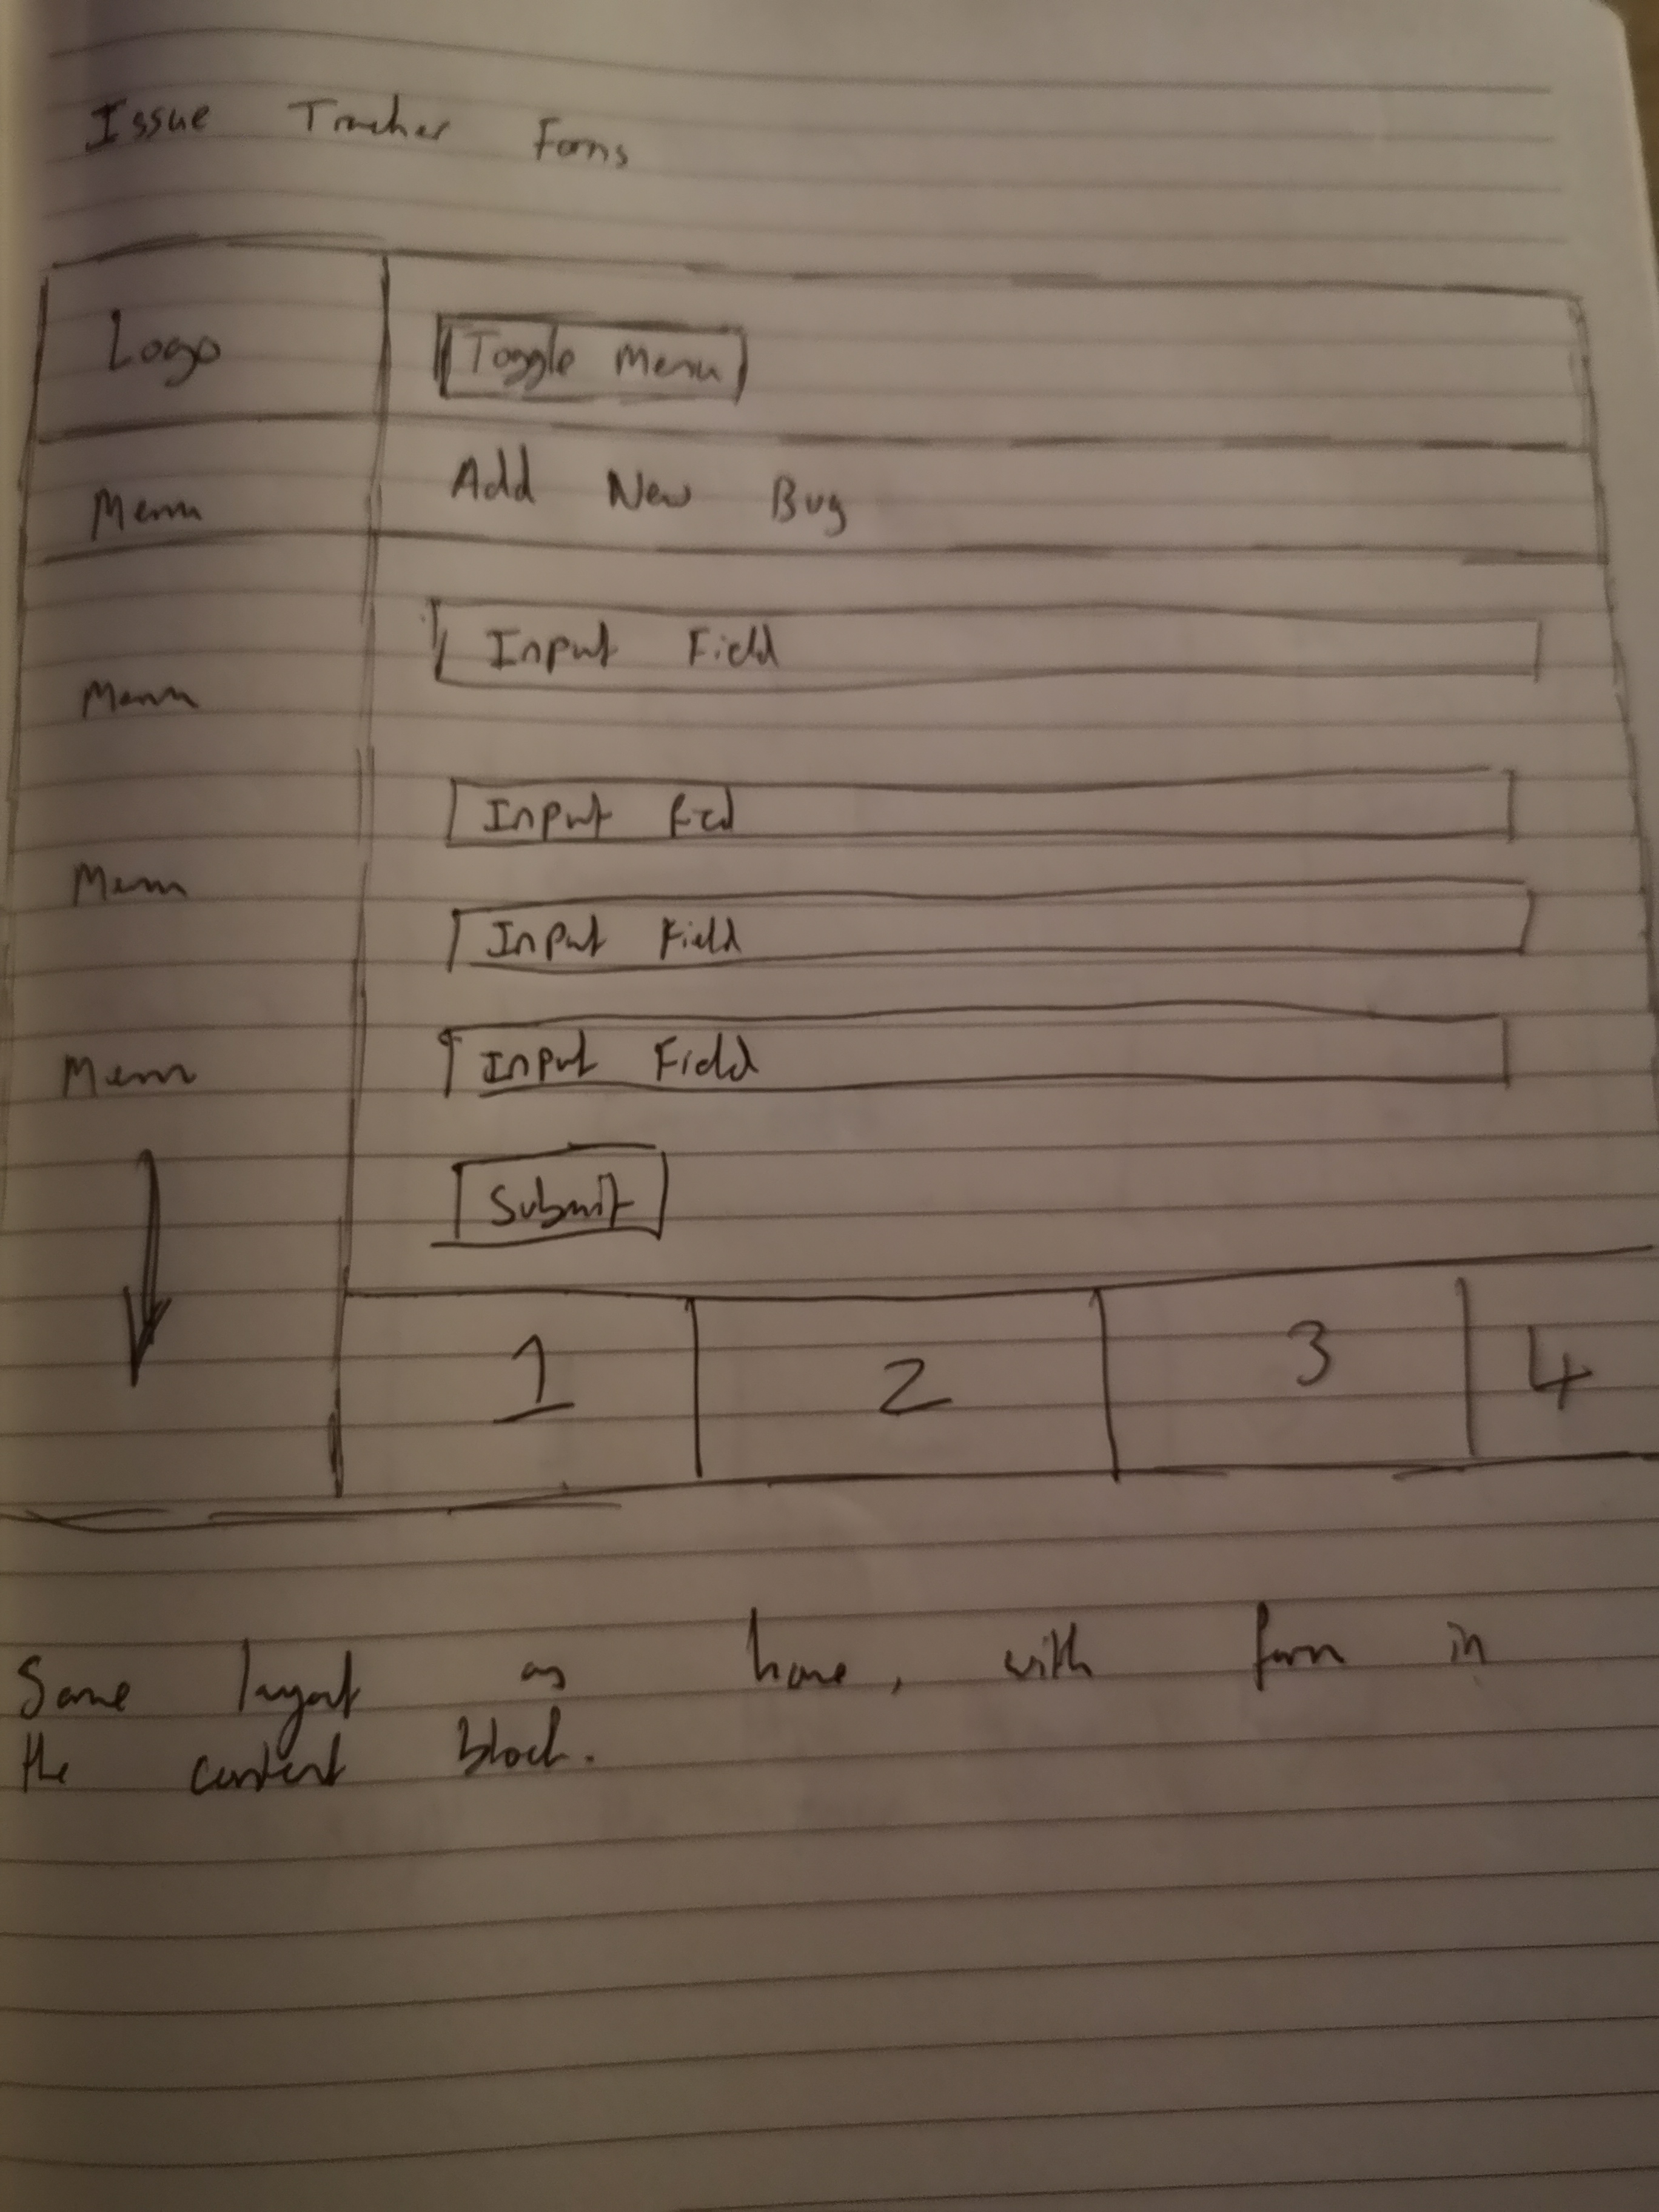 Issue Tracker Forms
Logo
Toggle Menu
Menu
Add New Bug
Input Field
Menu
Input Field
Menu
Input Field
Menu
Input Field
Submit
1
2
3
4
Same layout as home, with form in
the content block.